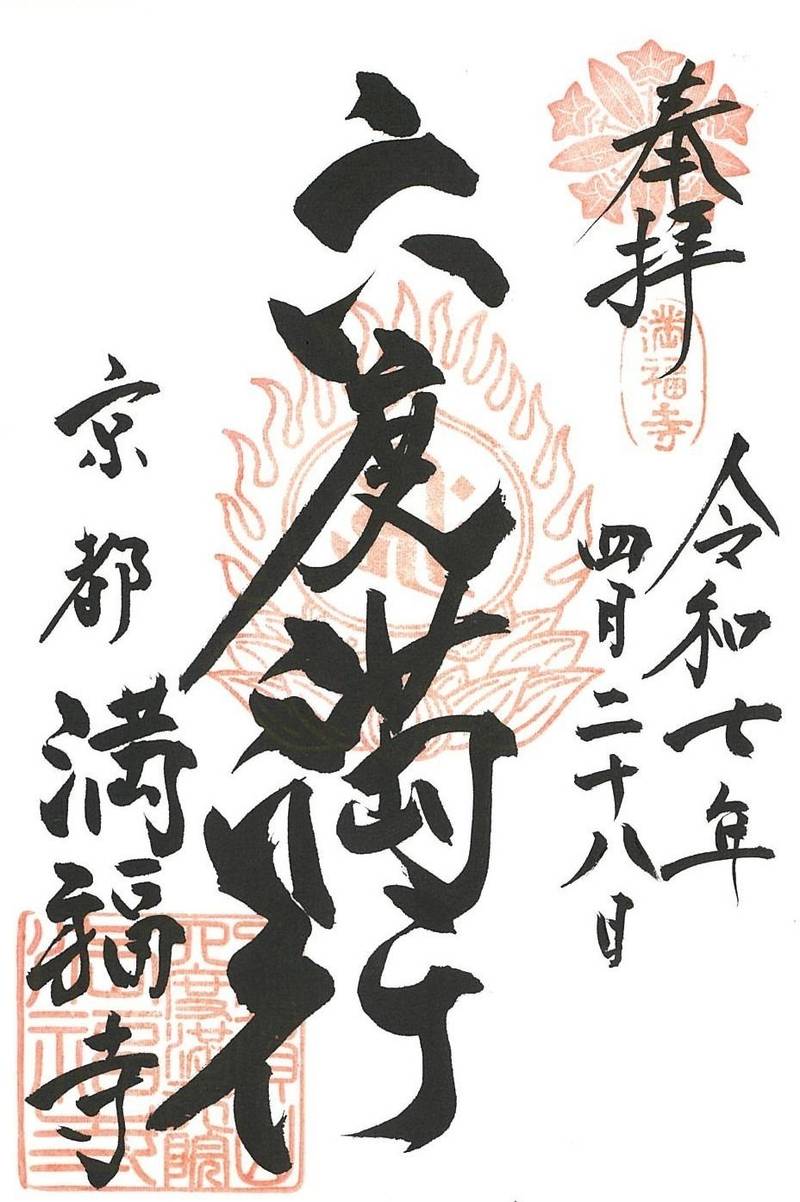 奉拝
満福寺
令和七年
四月二十八日
六度満行
京都
満福寺